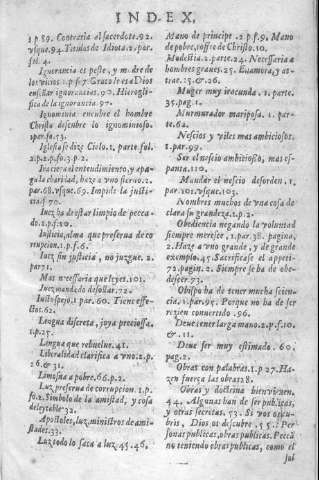 INDEX,
1 p 89. Contraria al sacerdote. 92.
vsque. 94. Titulos de Idiota. 2. par.
fol. 4.
Ignorancia es peste, y madre de
los vicios. 1. p f 7. Graue le es a Dios
enseñar ignorancias. 90. Hierogli-
fico de la ignorancia. 97.
Ignominia encubre el hombre
Christo descubre lo ignominioso.
1 per. fo. 73.
Iglesia se dize Cielo. 1. parte fol.
2. p. 2. p. fo. 3 p. 2.
Ira cierra el entendimiento, y apa-
gala charidad, haze a vno sieruo. 2.
par. 68. vsque. 69. Impide la justi-
cia. f 70.
Iuez ha de estar limpio de pecca-
do. 1. 2. p f. 20.
Iusticia, alma que preserua de co
rrupcion. 1. p. f. 6.
Iuez sin justicia, no juzgue. 2.
par 71.
Mas necessaria que leyes. 101.
Iuez mandado dessollar. 72.
Iusto espejo. 1 par. 60. Tiene effe-
ctos. 62.
Lengua discreta, joya preciossa.
1. p. 27.
Lengua que rebuelue. 41.
Liberalidad clarifica a vno. 2. p.
26. & 31.
Limosna a pobre. 66. p. 2.
Luz preserua de corrupcion. 1. p.
fo. 2. Simbolo de la amistad, y cosa
deleytable 32.
Apostoles, luz, ministros de ami-
stades. 33.
Luz todo lo saca a luz. 45. 46.
Mano de principe. 2 p f. 9. Mano
de pobre, coffre de Christo. 10.
Modestia. 2. parte. 24. Necessaria a
hombres graues. 25. Enamora, y as-
trae. 23. & 26.
Muger muy iracunda. 2. parte.
35. pag. 1.
Murmurador mariposa. 1. par-
te. 62.
Nescios y viles mas ambiciosos.
1. par. 99.
Ser el nescio ambiciosso, mas es-
panta. 110.
Mandar el nescio desorden. 1.
par. 101. vsque. 103.
Nombres muchos de vna cosa de
clara su grandeza. 1. p. 2.
Obediencia negando la voluntad
siempre meresce, 1. par. 38. pagina,
2. Haze a vno grande, y de grande
exemplo. 45. Sacrificase el appeti-
to 72. pagin. 2. Siempre se ha de obe-
descer. 73.
Obispo ha de tener mucha scien-
cia. 1. par. 95. Porque no ha de ser
rezien conuertido. 96.
Deue tener larga mano. 2. p. f. 10.
& 11.
Deue ser muy estimado. 60.
pag. 2.
Obras con palabras. 1. p 27. Ha-
zen fuerça las obras 28.
Obras y doctrina bien viuen.
44. Algunas han de ser publicas,
y otras secretas. 53. Si vos encu-
bris, Dios os descubre. 55. Per
sonas publicas, obras publicas. Pecca
no teniendo obras publicas, como el